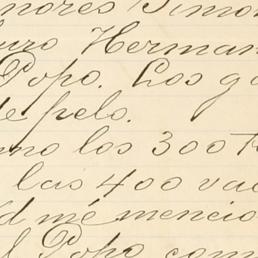 nores Simon
uro Herman
Popo. Los ga
de pelo.
mo los 300 t
las 400 vac
Vd me mencio
el Popo com